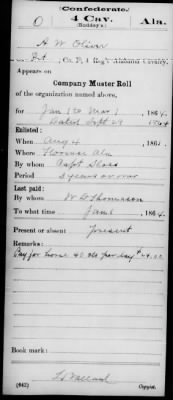 (Confederate.)
O 4 Cav. Ala.
(Roddey's)
A W Oliver
Pvt, Co. F, 4 Reg't Alabama Cavalry.
Appears on
Company Muster Roll
of the organization named above,
for Jan 1 to Mar 1, 1864.
Dated Sept 29 1864
Enlisted:
When Aug 4, 186
Where Florence Ala
By whom Capt
Period 3 years or war
Last paid:
By whom W D Thomason
To what time Jan 1, 1864
Present or absent Present
Remarks:
Pay for horse 40 cts per day $24.00
Book mark:
(642) Copyist.